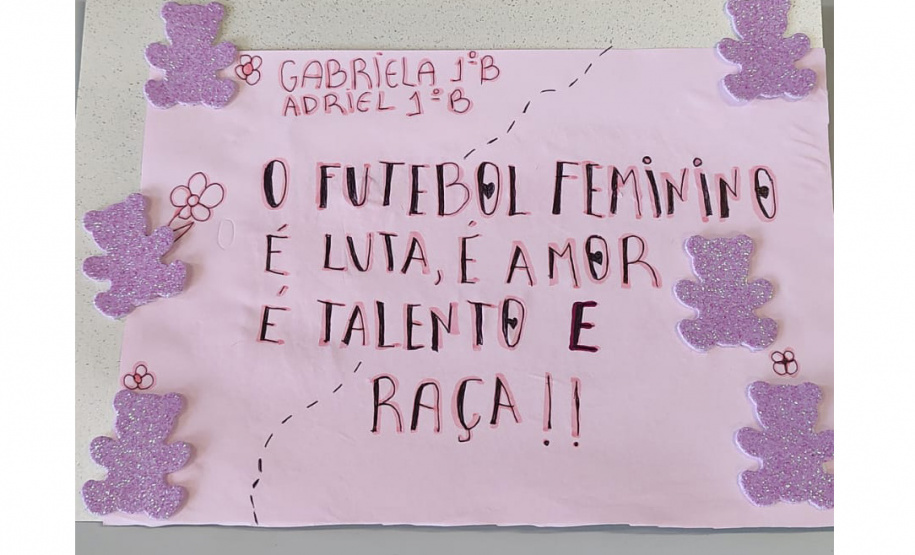 GABRIELA 1ºB
ADRIEL 1ºB
O FUTEBOL FEMININO
É LUTA, É AMOR
É TALENTO E
RAÇA!!